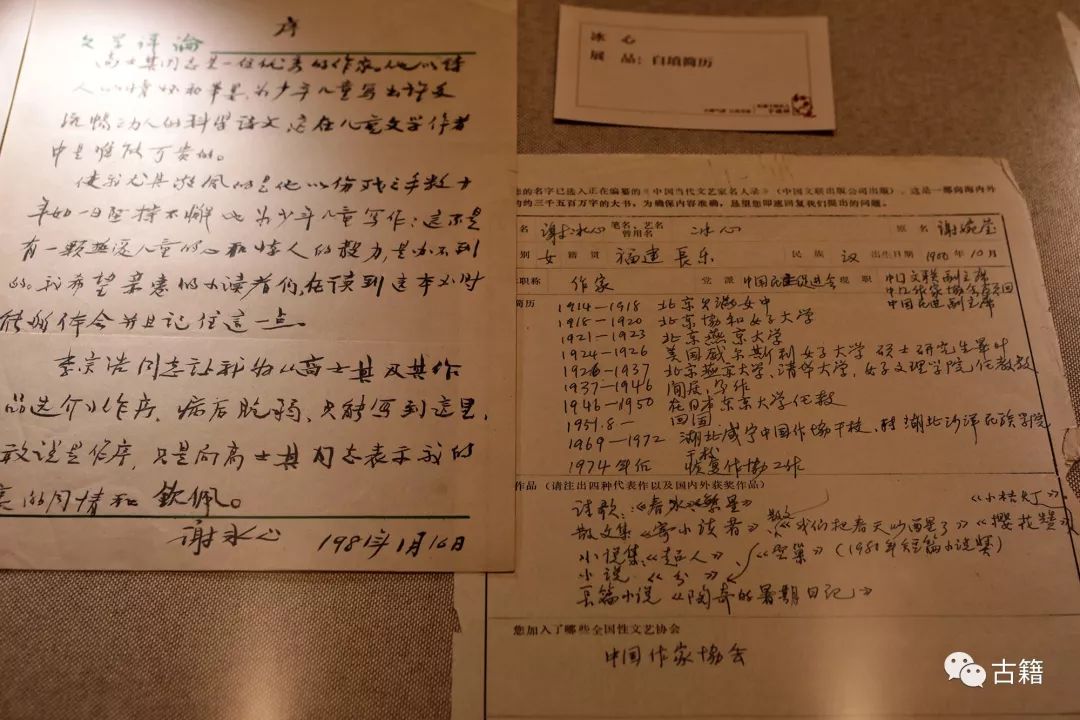 序
文学评论
高士其同志是一位优秀的作家。他以诗
人的情怀和苹果,为少年儿童写出许多
流畅动人的科学诗文,这在儿童文学作者
中是难能可贵的。
使我尤其敬佩的是他以伤残之手数十
年如一日坚持不懈地为少年儿童写作;这不是
有一颗热爱儿童的心和惊人的毅力,是办不到
的。我希望亲爱的小读者们,在读到这本书时
能体会并且记住这一点。
李宗浩同志让我为《高士其及其作
品选介》作序,病后脆弱,只能写到这里,
敢说是作序,只是向高士其同志表示我的
衷的同情和钦佩。
谢冰心 1981年1月16日
冰 心
展 品:自填简历
您的名字已选入正在编纂的《中国当代文艺家名人录》(中国文联出版公司出版),这是一部向海内外
约三千五百万字的大书,为确保内容准确,恳望您即速回复我们提出的问题。
名 谢冰心 笔名、艺名 曾用名 冰心 原名 谢婉莹
别 女 籍贯 福建长乐 民族 汉 出生日期 1900年10月
职称 作家 党派 中国民主促进会 现职 中国文联副主席
中国作家协会
中国民进副主席
简历 1914—1918 北京贝满女中
1918—1920 北京协和女子大学
1921—1923 北京燕京大学
1924—1926 美国威尔斯利女子大学 硕士研究生毕业
1926—1937 北京燕京大学,清华大学,女子文理学院任教授
1937—1946 闲居,写作
1946—1950 在日本东京大学任教
1951.8— 回国
1969—1972 湖北咸宁中国作协干校,转湖北沙洋民族学院
干校
1974年后 恢复作协工作
作品(请注出四种代表作以及国内外获奖作品)
诗歌:《春水》《繁星》 《小桔灯》
散文集《寄小读者》 散文《我们把春天吵醒了》《樱花赞》
小说集《超人》《空巢》(1980年短篇小说奖)
小说《分》
长篇小说《陶奇的暑期日记》
您加入了哪些全国性文艺协会
中国作家协会
古籍